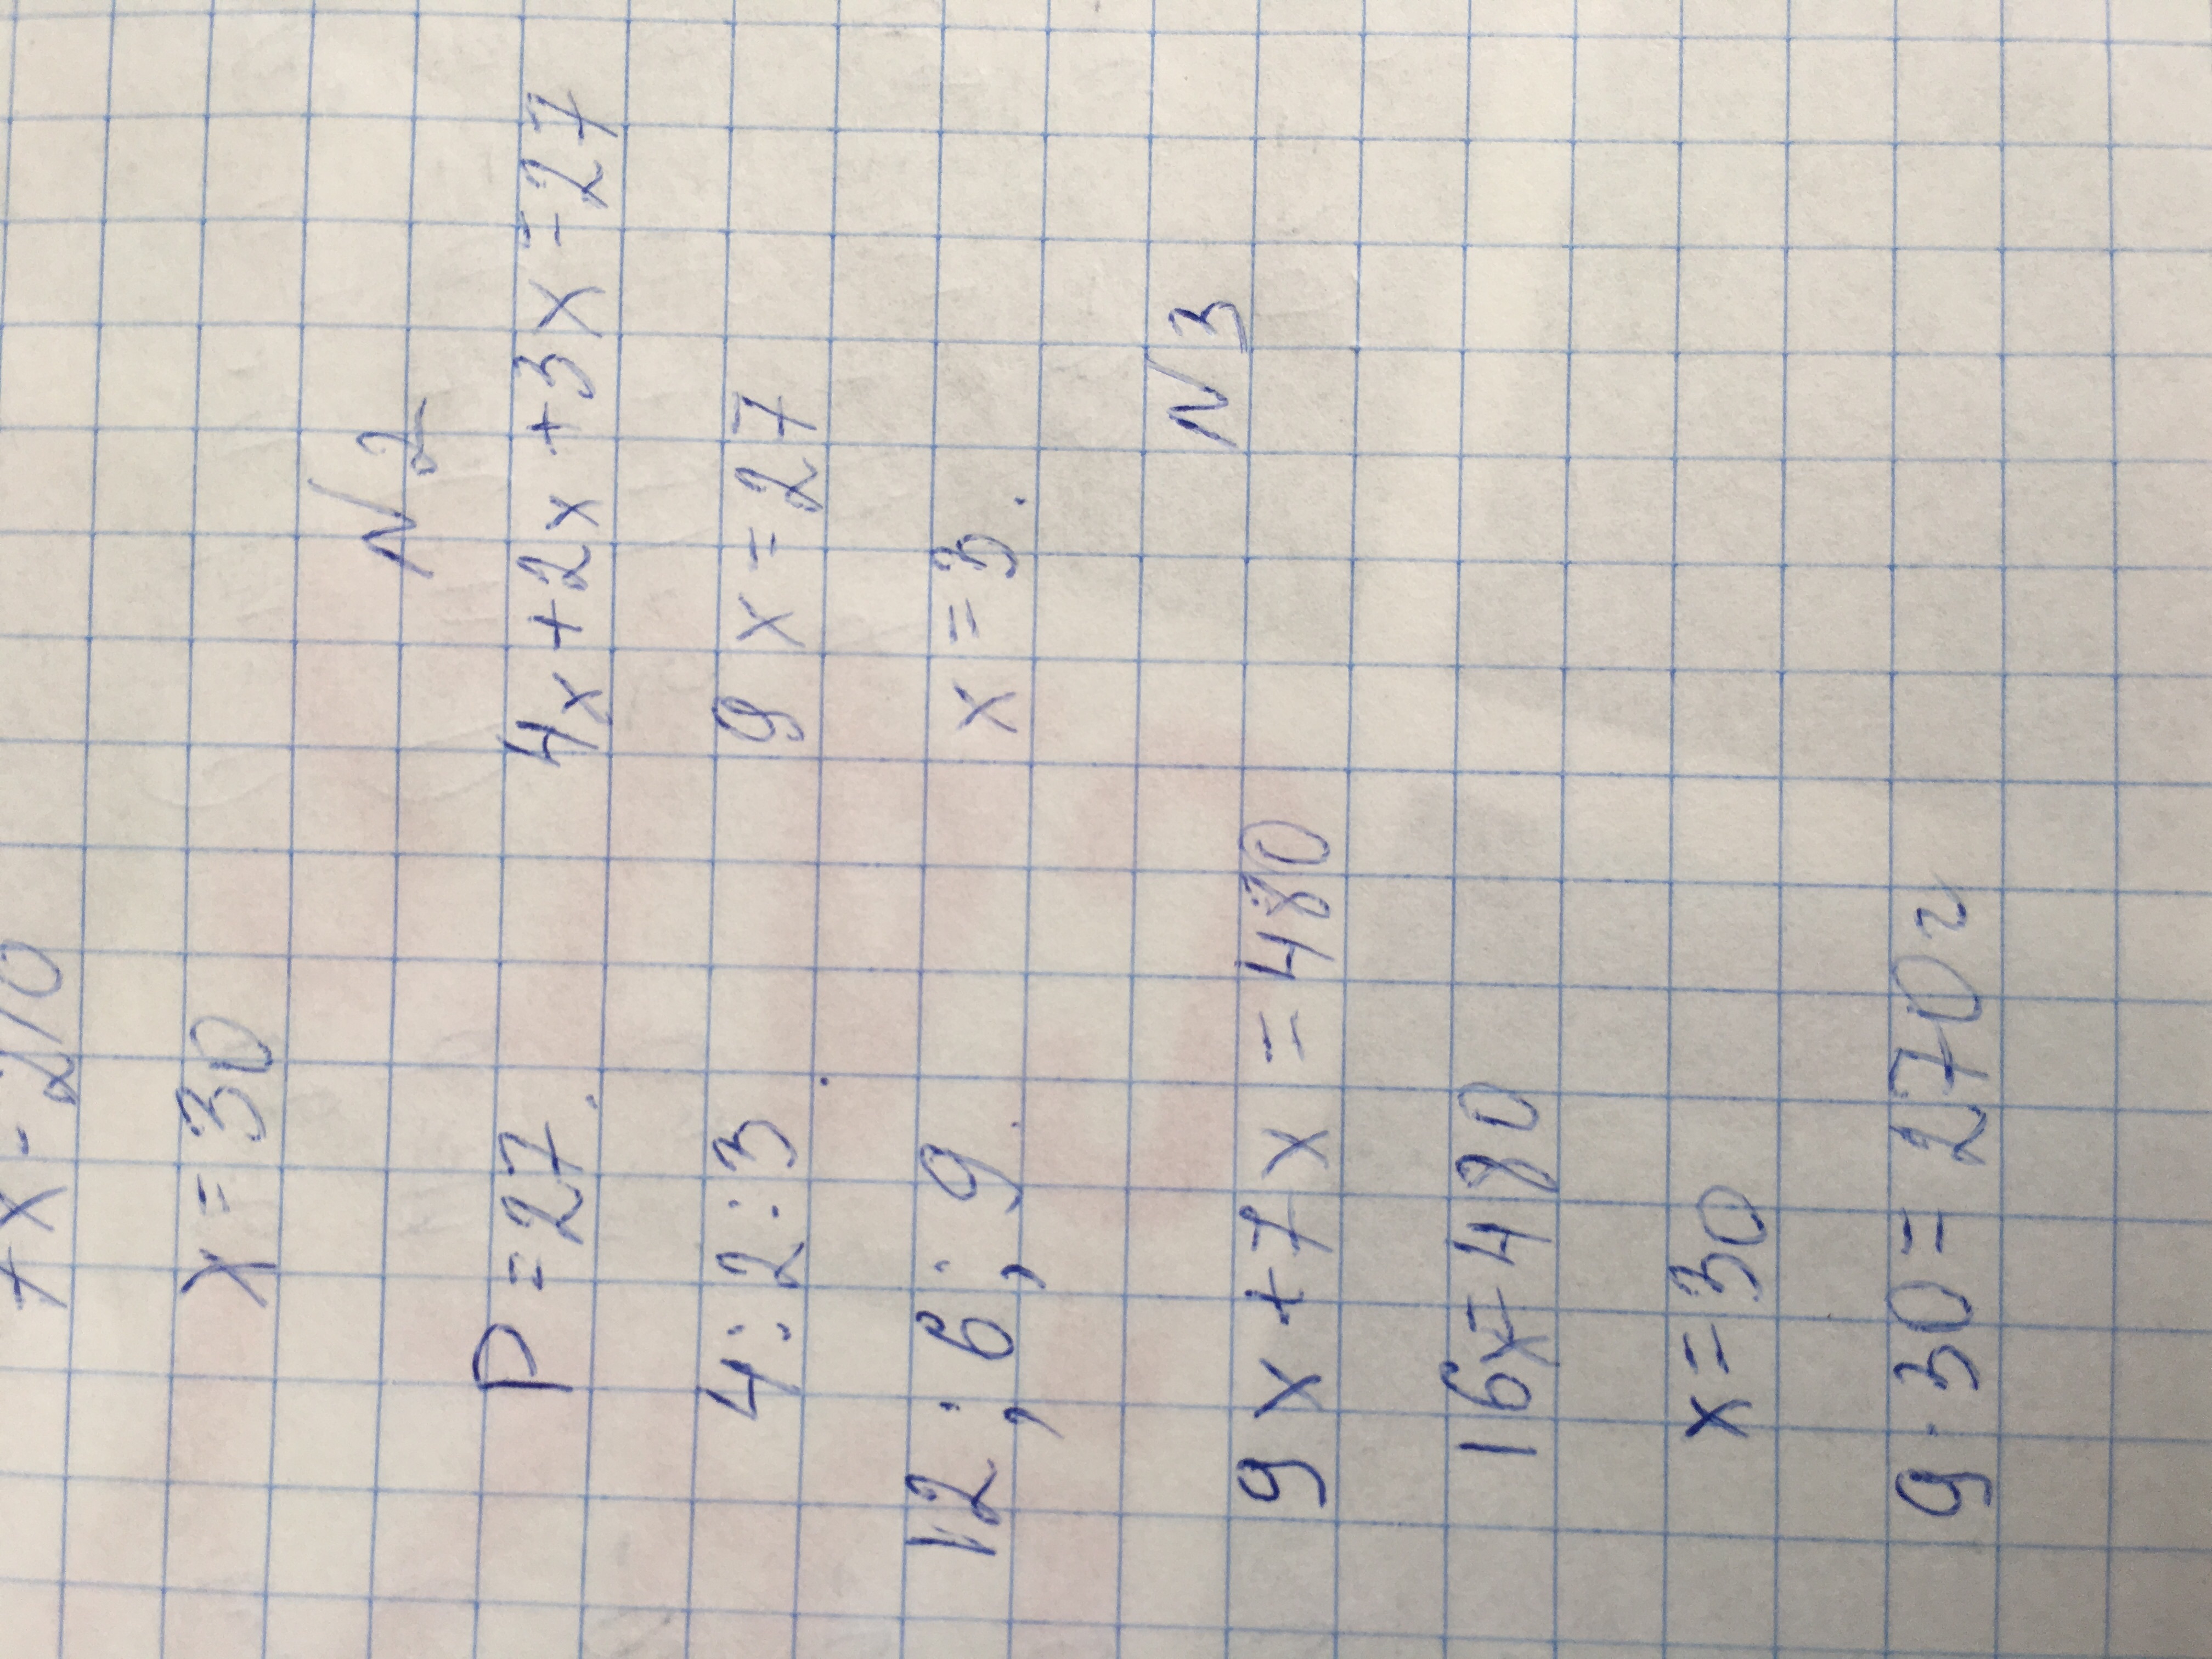 7x=210
x=30
N2
P=27. 4x+2x+3x=27
4:2:3. 9x=27
12; 6; 9. x=3.
N3
9x+7x=480
16x=480
x=30
9·30=270г